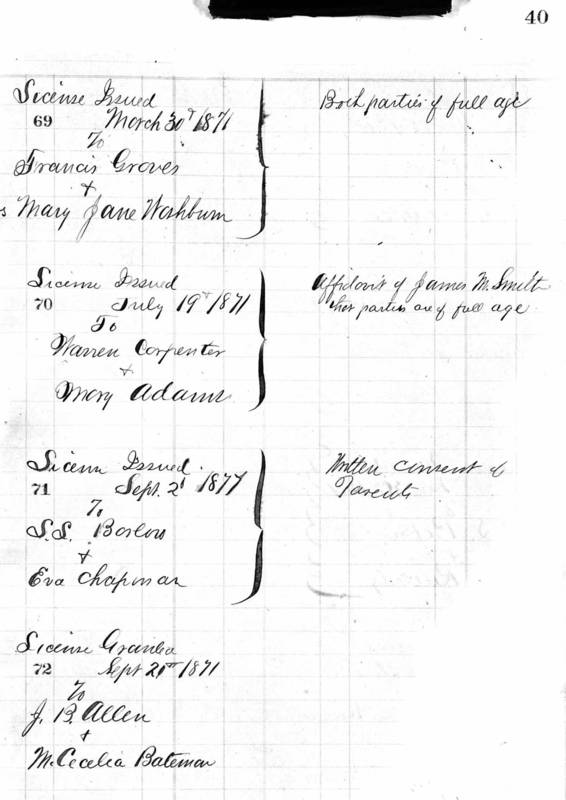 40
License Issued
69 March 30th 1871
To
Francis Groves
+
Mary Jane Washburn
Both parties of full age
License Issued
70 July 19th 1871
To
Warren Carpenter
+
Mary Adams
Affidavit of James M. Smith
that parties are of full age
License Issued
71 Sept. 21 1871
To
S.S. Barlow
+
Eva Chapman
Written consent of
Parents
License Granted
72 Sept 21st 1871
To
J. B. Allen
+
M. Cecelia Bateman